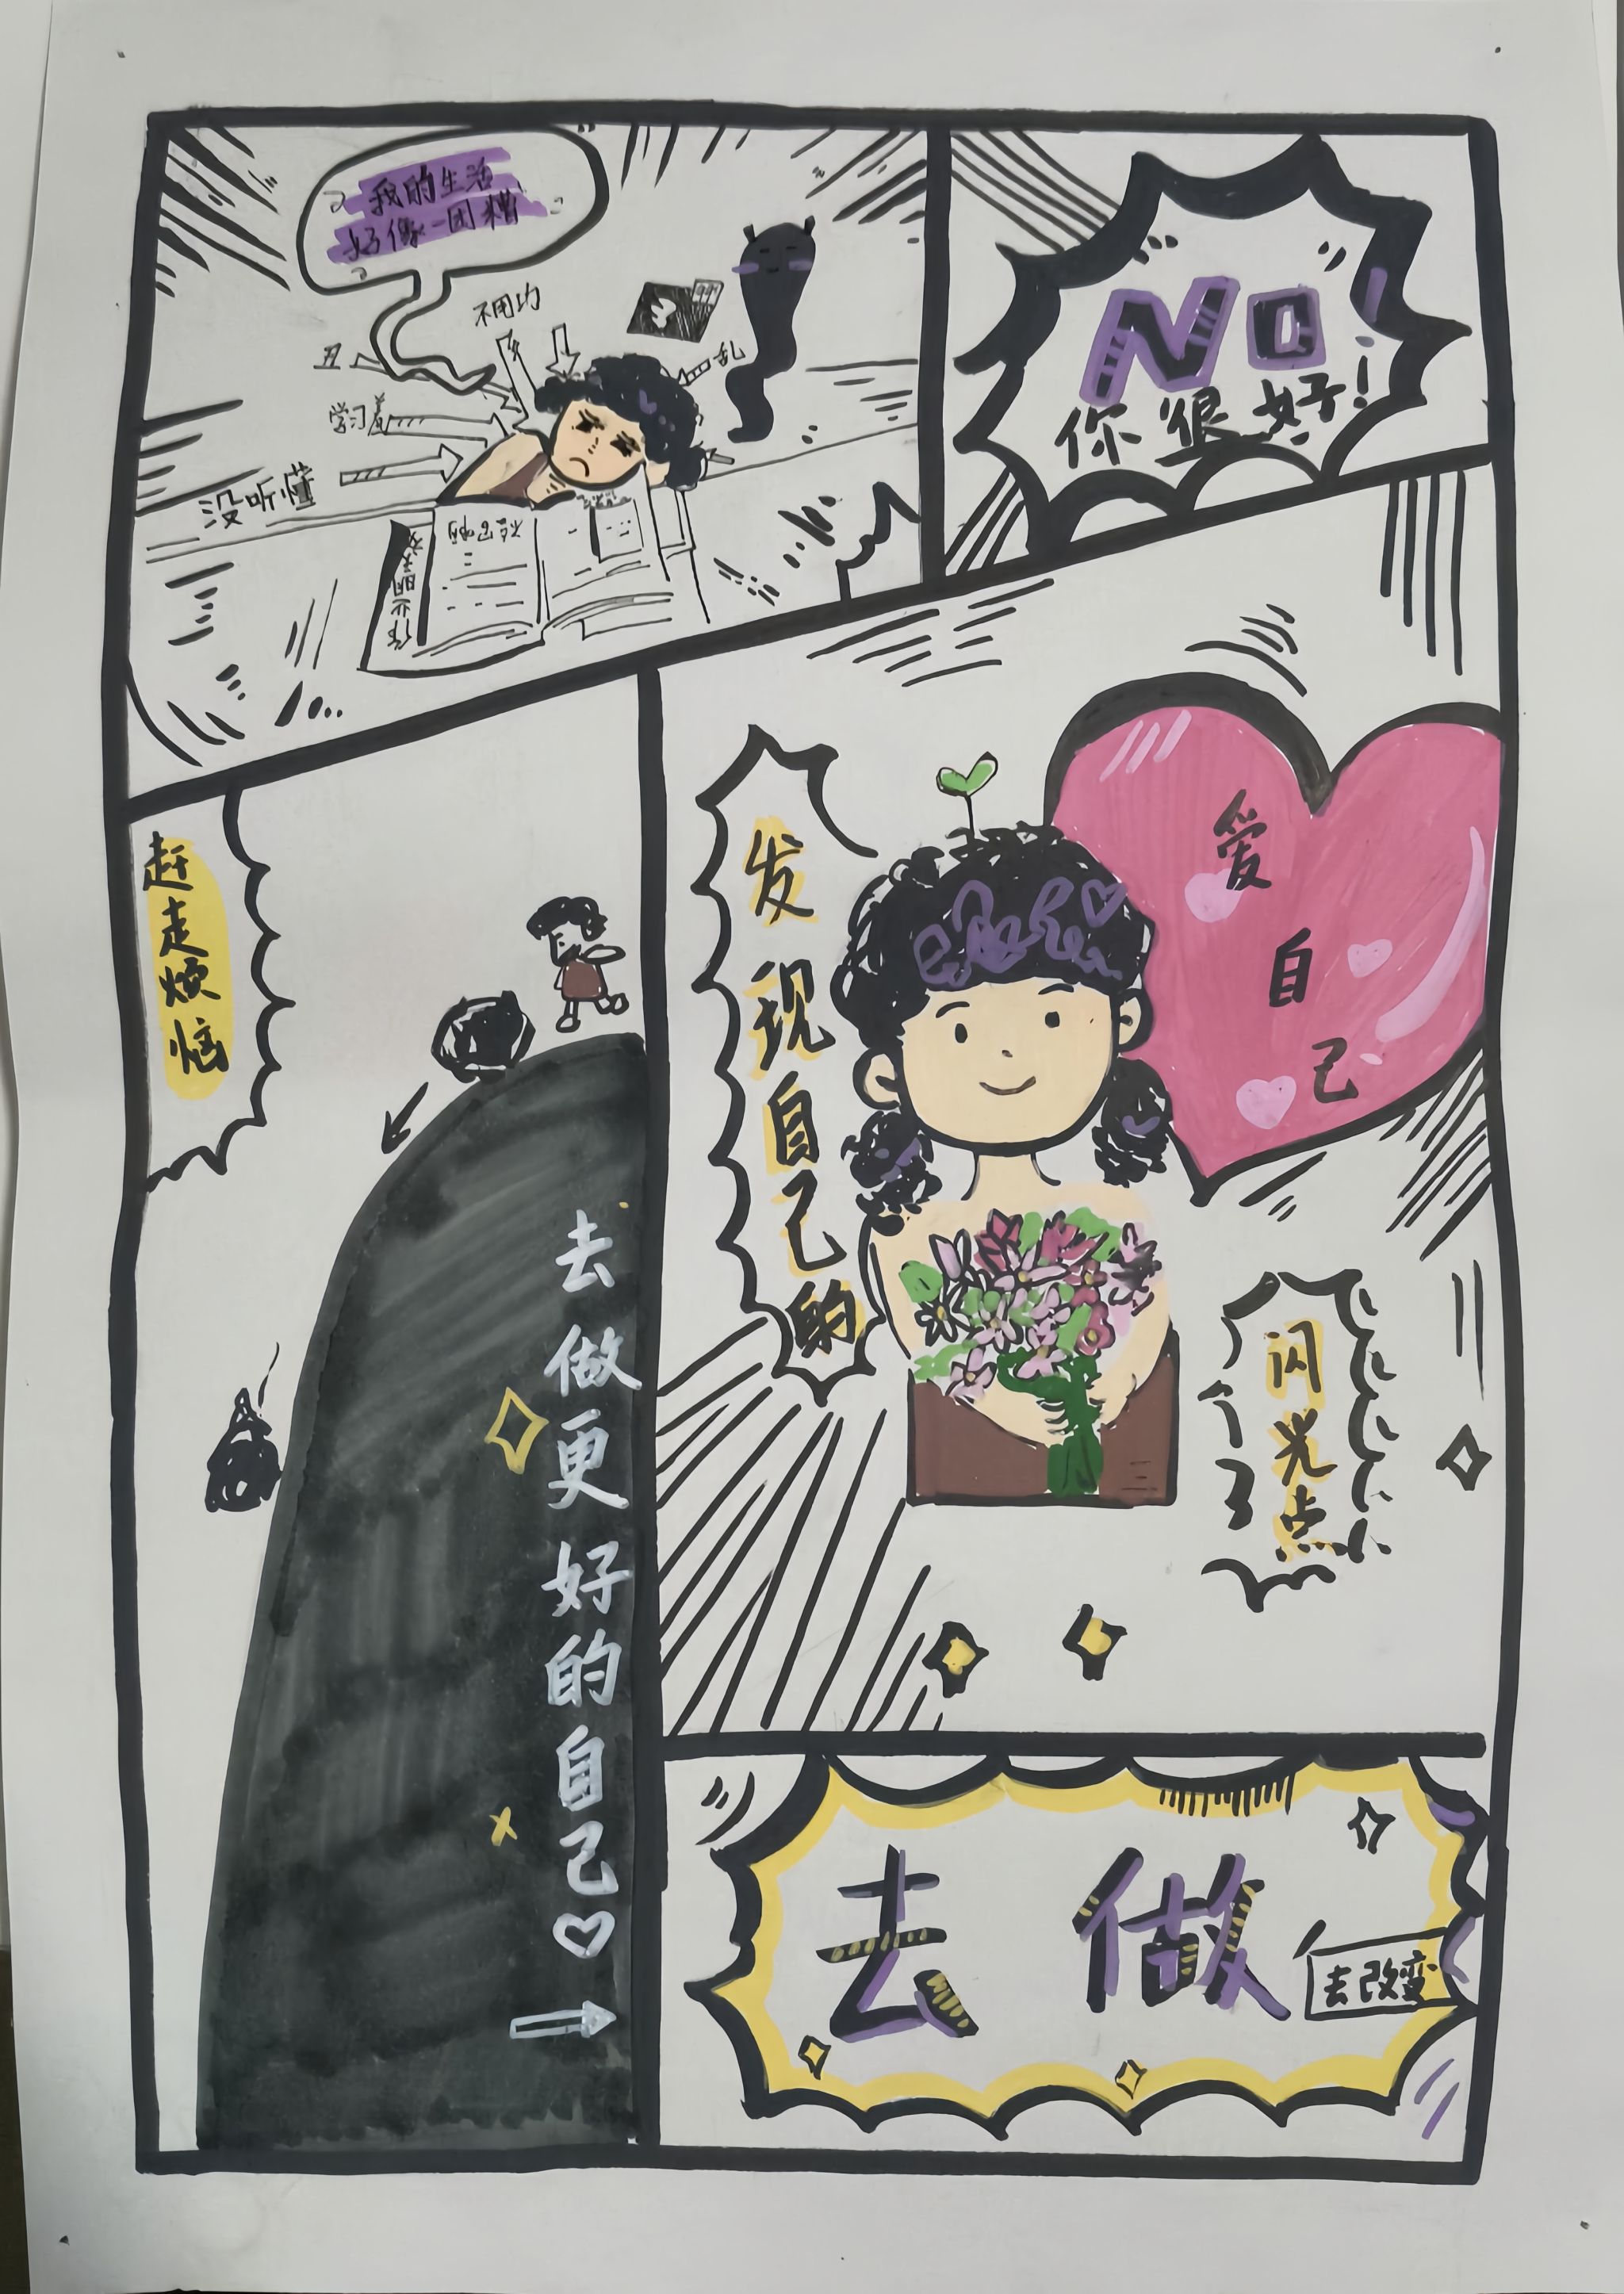 我的生活
好像一团糟
不用功
丑
乱
学习差
没听懂
NO!
你很好!
赶走烦恼
去做更好的自己
发现自己的
闪光点
爱自己
去做
去改变